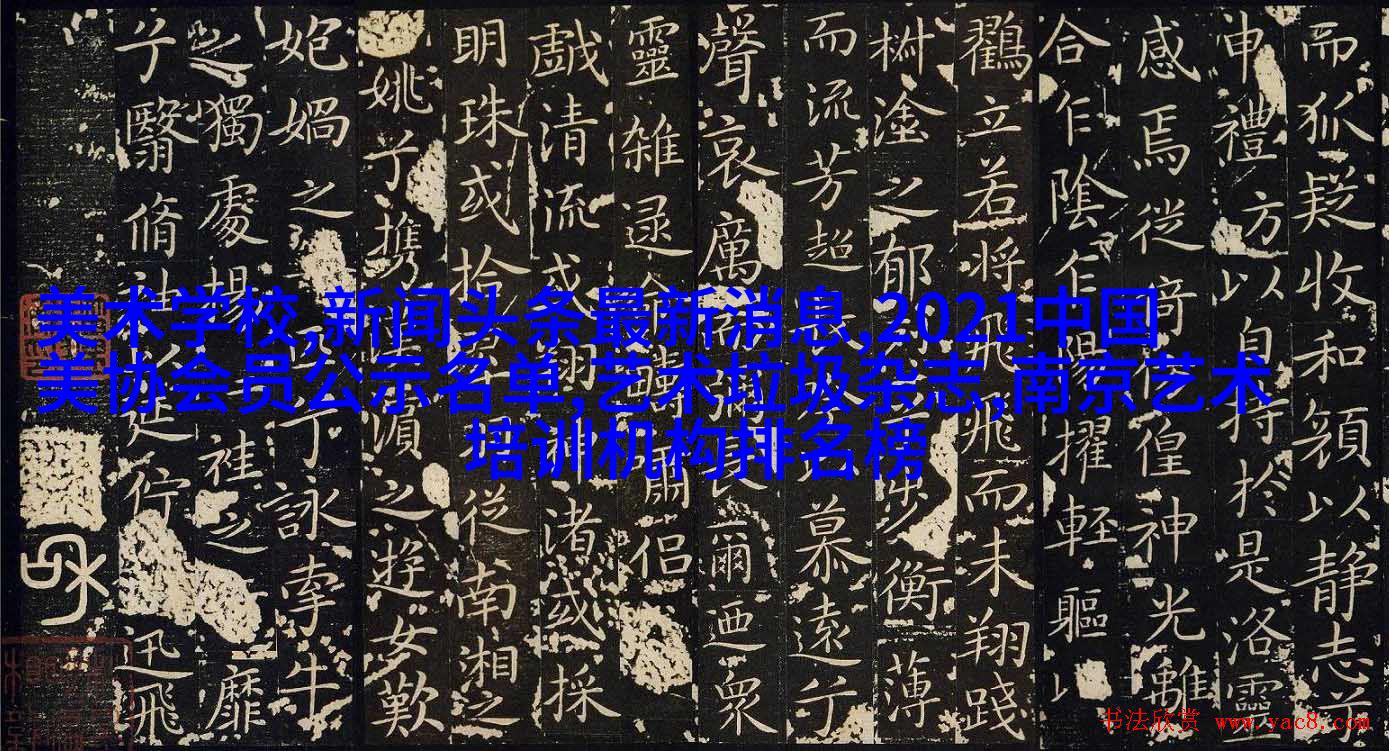 而狐疑收和顔以静志兮
申禮方以自持於是洛靈
感焉從倚偟神光離
合乍陰乍陽擢輕軀以
鸛立若將飛飛而未翔踐
椒塗之郁步衡薄
而流芳超以慕遠兮
聲哀厲弥長爾迺衆
靈雜遝命嘯侶
戯清流或翔神渚或採
明珠或拾羽從南湘之
姚兮攜濱之遊女歎
妃媧之兮詠牽牛
之獨處揚袿之靡
兮翳脩袖延佇迅飛
美术学校,新闻头条最新消息,2021中国
美协会员公示名单,艺术垃圾杂志,南京艺术
培训机构排名榜
书法欣赏 www.yac8.com